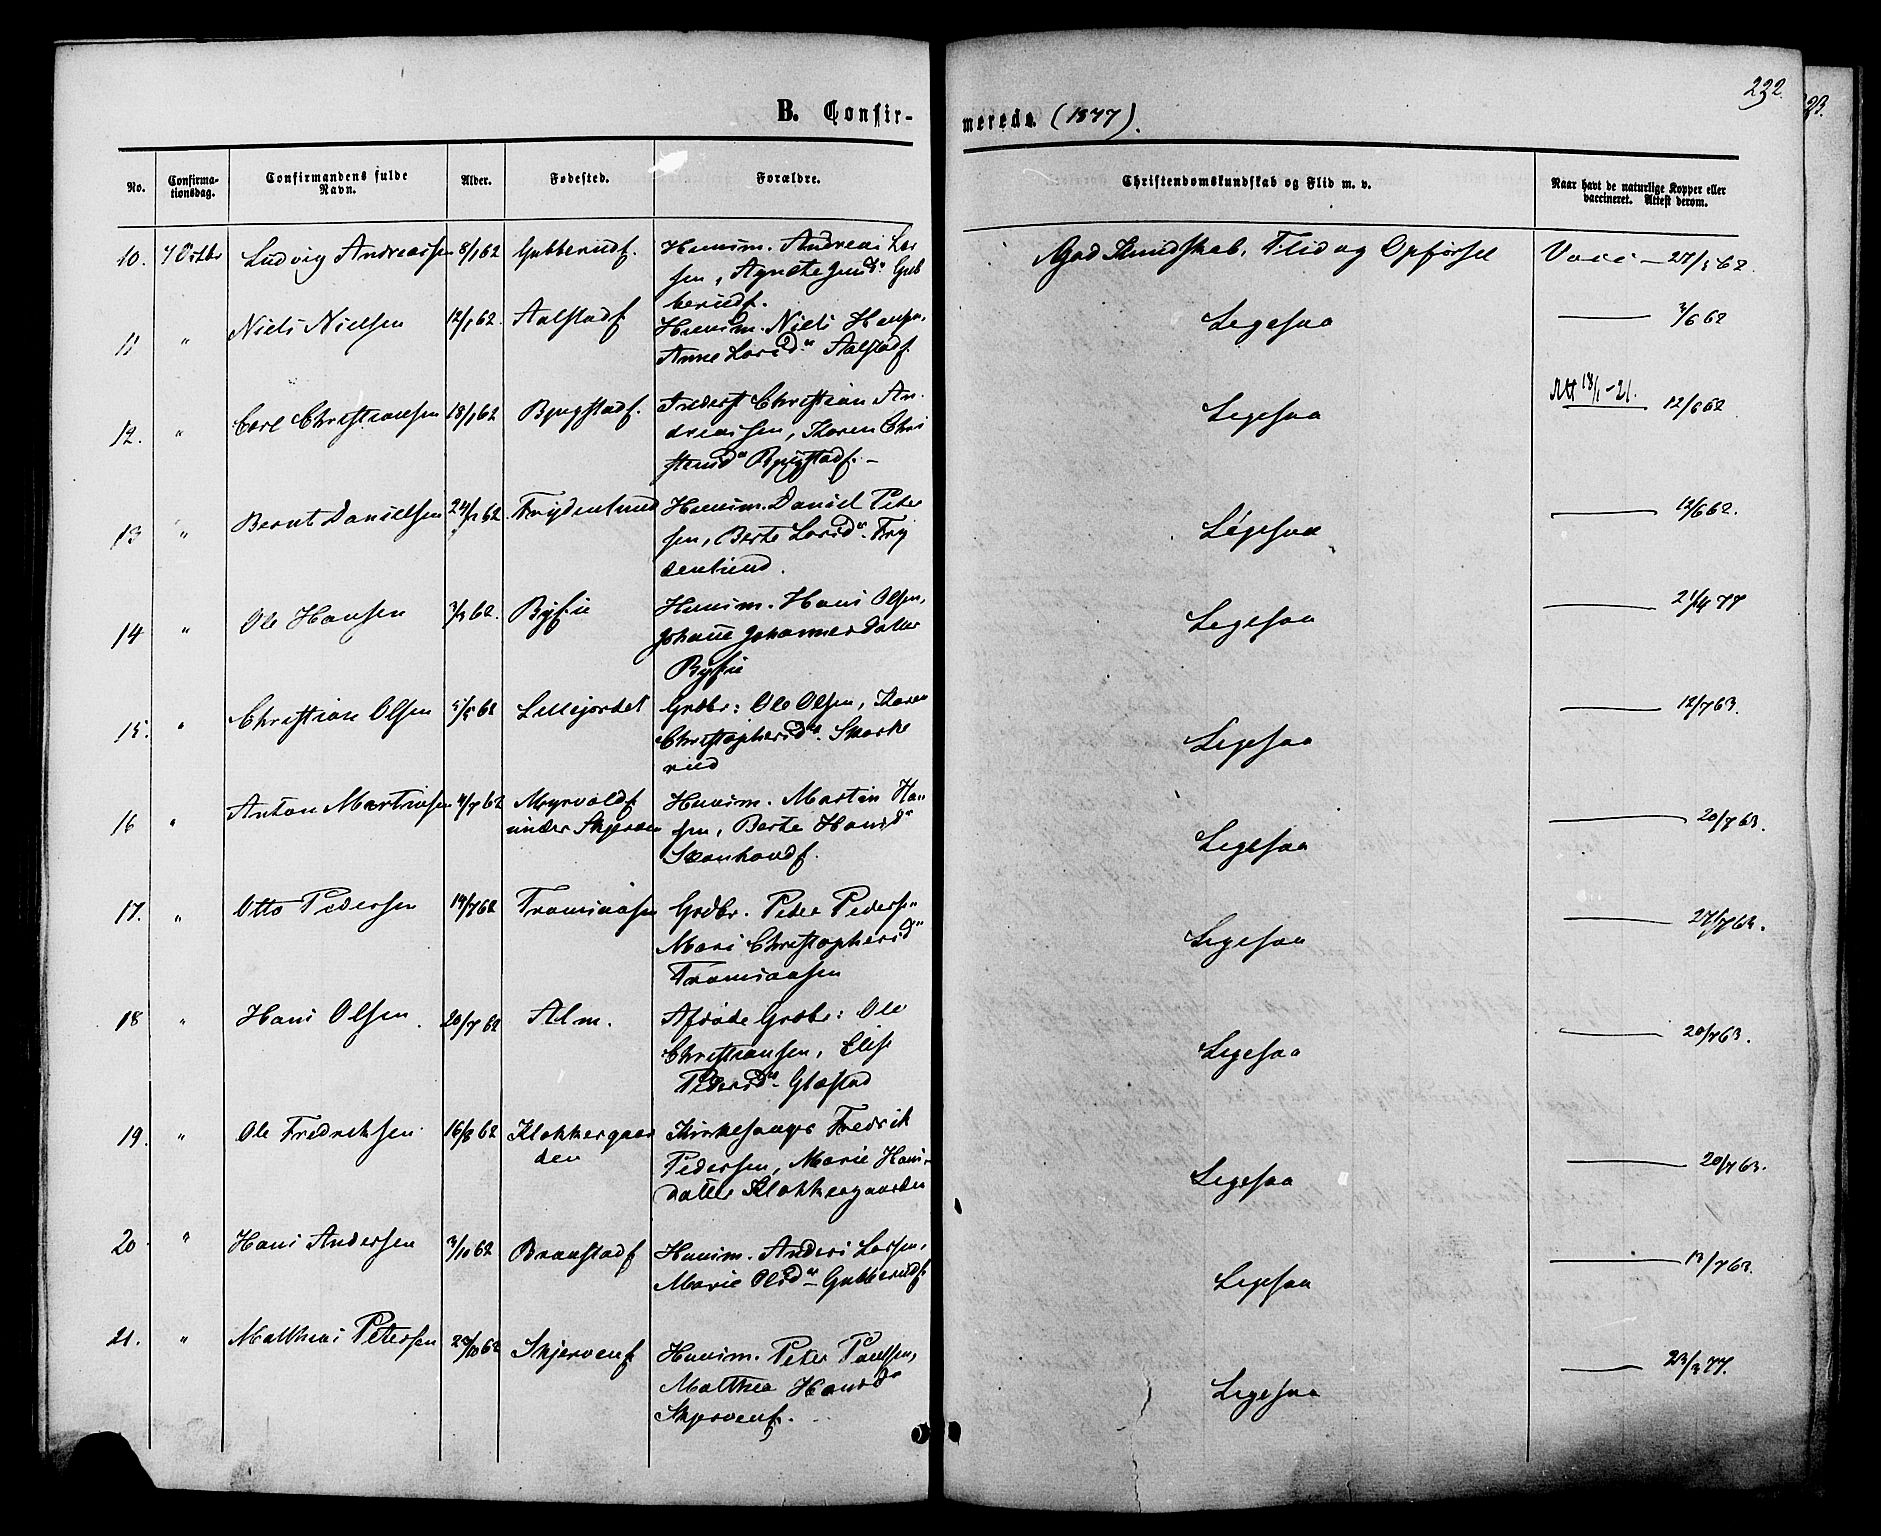 232.
B. Confir-
merede. (1877).
No.
Confirma-
tionsdag.
Confirmandens fulde
Navn.
Alder.
Fødested.
Forældre.
Christendomskundskab og Flid m. v.
Naar havt de naturlige Kopper eller
vaccineret. Attest derom.
10. 7 Octbr Ludvig Andreassen 8/1 62 Gubberudf. Huusm. Andreas Lar
sen, Agnete Gub
berudf.
God Kundskab, Flid og Opførsel Vacc — 27/5 62
11 " Niels Nielsen 12/1 62. Aalstadf Huusm. Niels Hansen,
Anne Larsd. Aalstadf.
Ligesaa — 3/6 62
12. " Carl Christiansen 18/1 62 Bjugstadf. Christian An-
dreassen, Karen Chri
stensd. Bjugstadf. —
Ligesaa Att 18/1 - 21. — 12/6 62
13 " Bernt Danielsen 24/2 62. Frydenlund Huusm. Daniel Peter
sen, Berte Larsd. Fry
denlund.
Ligesaa — 12/6 62.
14 " Ole Hansen 3/3 62. Byfie Huusm. Hans Olsen,
Johanne Johannesdatter
Byfie
Ligesaa — 21/4 77
15. " Christian Olsen 5/5 62 Lillejordet Grdbr: Ole Olsen, Karen
Christophersd.
rud
Ligesaa — 12/7 63.
16 " Anton Martinsen 4/7 62 Myrvoldf.
under Skjerven Huusm. Martin Han-
sen, Berte Hansd.
Ligesaa — 20/7 63.
17. " Otto Pedersen 14/7 62 Framsaasen Grdbr. Peder Pedersen
Mari Christophersd
Framsaasen
Ligesaa — 27/7 63.
18 " Hans Olsen 20/7 62 Alm. Afdøde Grdbr: Ole
Christiansen, Elise
Pedersd. Glæstad
Ligesaa — 20/7 63.
19. " Ole Fredriksen 16/8 62 Klokkergaar
den Kirkesanger Fredrik
Pedersen, Marie Hans-
datter Klokkergaarden
Ligesaa — 20/7 63.
20 " Hans Andersen 3/10 62 Braastadf Huusm. Anders Larsen,
Marie Olsd. Gubberudf.
Ligesaa — 13/7 63.
21. " Matthias Petersen 24/10 62 Skjervenf Huusm. Peter Paulsen,
Matthea Hansd
Skjervenf.
Ligesaa — 23/3 77.